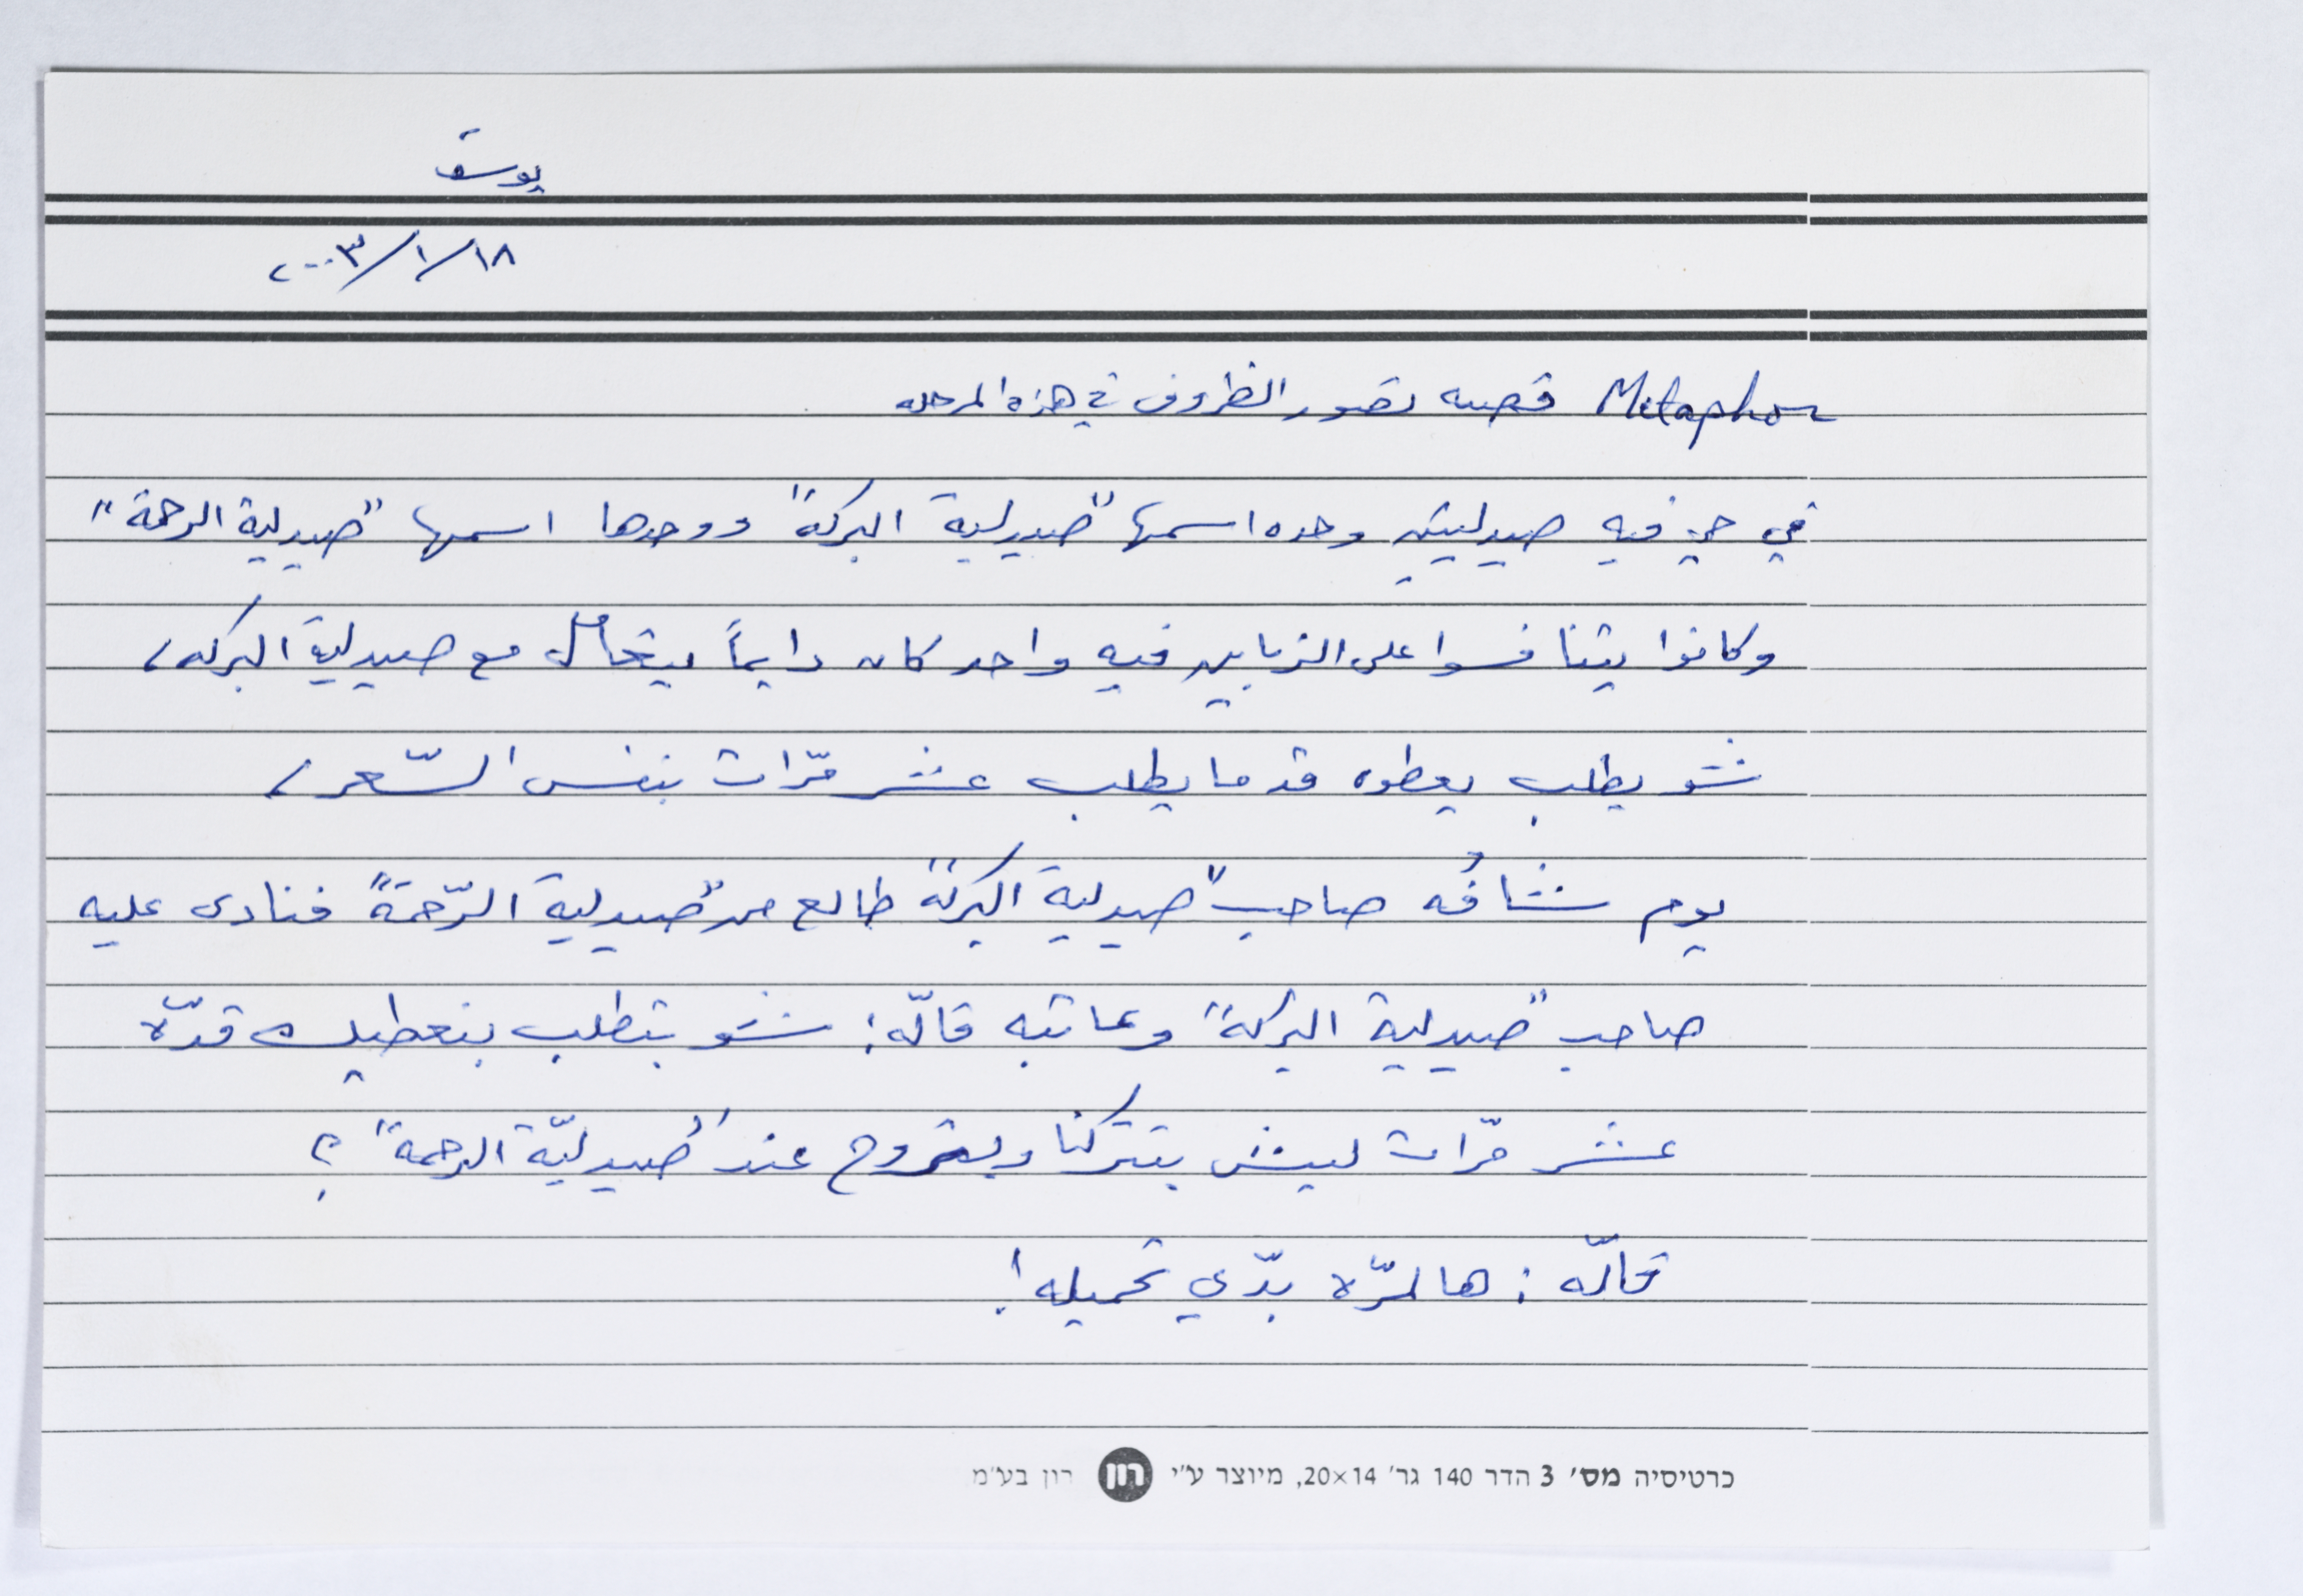 يوسف
١٨/١/٢٠٠٣
Metaphor قصه تصور الظروف في هذه المرحله
في حي فيه صيدليتين وحده اسمها "صيدلية البركة" ووحدها اسمها "صيدلية الرحمة"
وكانوا يتنافسوا على الزباين فيه واحد كان دايماً يتعامل مع صيدلية البركه،
شو يطلب يعطوه قد ما يطلب عشر مرّات بنفس السّعر،
يوم شافُه صاحب "صيدلية البركة" طالع من "صيدلية الرّحمة" فنادى عليه
صاحب "صيدلية البركة" وعاتبه قالّه: شو بتطلب بنعطيك قدّه
عشر مرّات ليش بتتركنا وبتروح عند "صيدليّة الرحمة"؟
قالّه: هالمرّه بدّي تحميله!
כרטיסיה מס' 3 הדר 140 גר' 20×14, מיוצר ע"י רון רון בע"מ